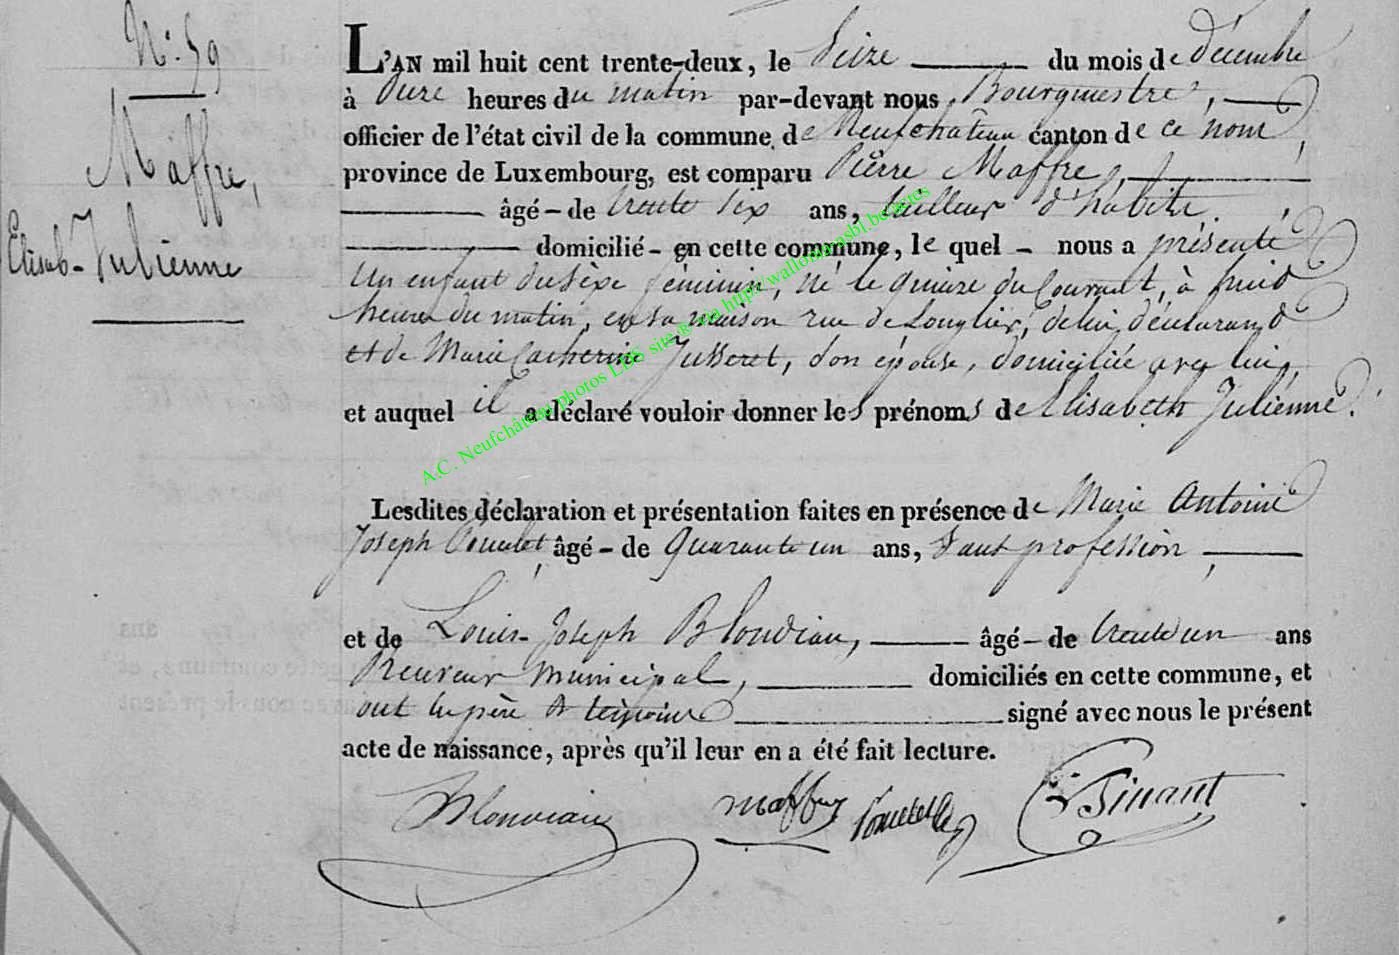 N.° 59
Maffre,
Elisab-Julienne
L'AN mil huit cent trente-deux, le Seize du mois de décembre
à Onze heures du matin par-devant nous Bourgmestre,
officier de l'état civil de la commune de Neufchâteau canton de ce nom,
province de Luxembourg, est comparu Pierre Maffre,
âgé-de trente six ans, tailleur d'habits,
domicilié-en cette commune, le quel - nous a présenté
Un enfant du sexe féminin, né le quinze du Courant, à huit
heures du matin, en sa maison rue de Longlier, de lui déclarant
et de Marie Catherine Jusseret, son épouse, domiciliée avec lui,
et auquel il a déclaré vouloir donner les prénoms de Elisabeth Julienne.
Lesdites déclaration et présentation faites en présence de Marie Antoine
Joseph âgé-de Quarante un ans, Sans profession,
et de Louis-Joseph Blondiau, âgé-de trente un ans
Receveur municipal, domiciliés en cette commune, et
ont les père & témoins signé avec nous le présent
acte de naissance, après qu'il leur en a été fait lecture.
Blondiau Maffre Pinant
A.C. Neufchâteau photos LDS site @ via http://wallonia.asbl.be/actes